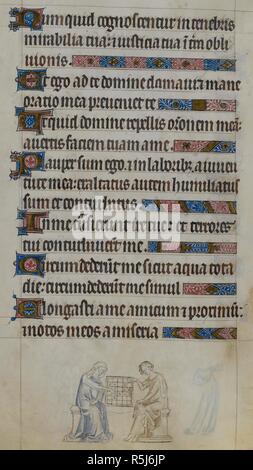 Numquid cognoscentur in tenebris
mirabilia tua: et iusticia tua in t̃ra obli
uionis.
Et ego ad te domine clamaui: et mane
oratio mea preueniet te
Ut quid domine repellis orõnem meã:
auertis faciem tuam a me.
Pauper sum ego. et in laboribȝ a iuuen
tute mea: exaltatus autem humiliatus
sum et conturbatus
In me transierunt ire tue: et terrores
tui conturbauerunt me.
Circumdederũt me sicut aqua tota
die: circumdederũt me simul
Elongasti a me amicum et proximũ:
notos meos a miseria
alamy
alamy
Image ID: R5J6JP
www.alamy.com